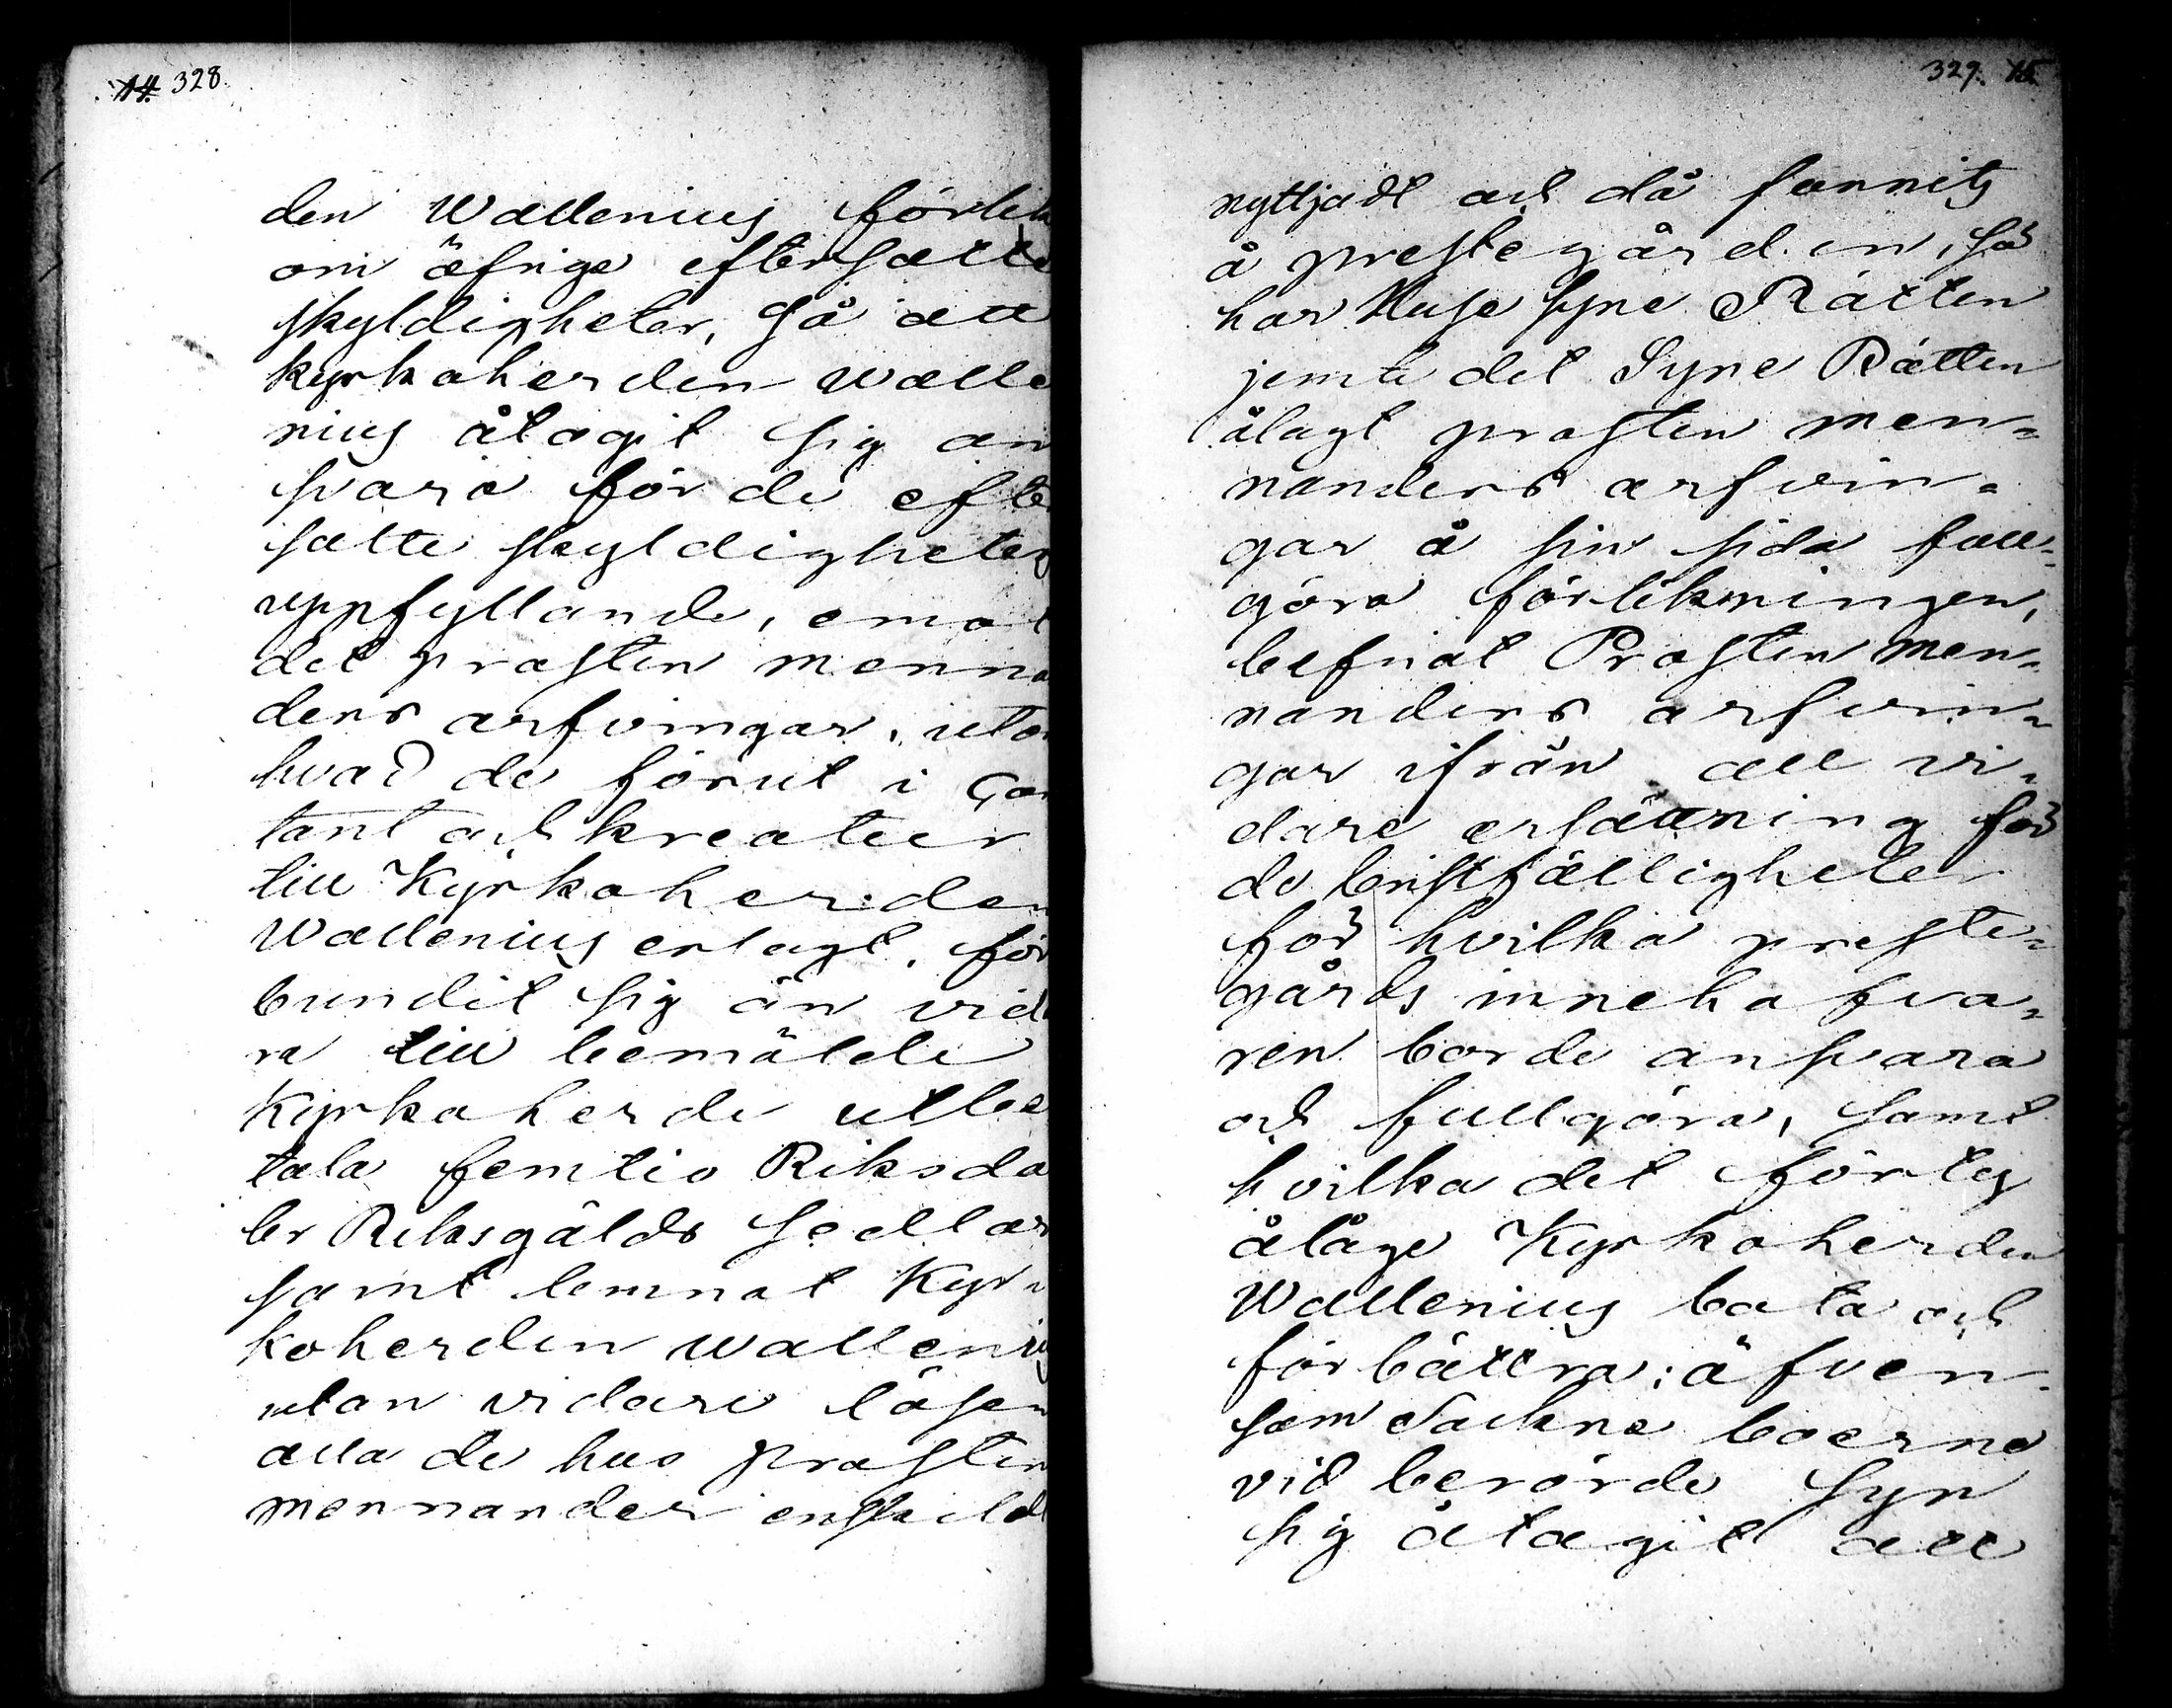 14. 328.
den Wallenius förlik
om öfrige eftersatte
skyldigheter, Så att
kyrkoherden Walle
nius åtagit sig an
svara för de efte
satte skyldigheters
uppfyllande, emot
det prosten Menna
ders arfvingar, utom
hvad de förut i Con
tant och kreatur
till Kyrkoherden
Wallenius erlagt, för
bundit sig än vida
ra till bemälde
Kyrkoherde utbe
tala femtio Riksda
ler Riksgälds Sedlar
samt lemnat Kyr=
koherden Wallenius
utan vidare lösen
alla de hus prosten
Mennander enskildt
329. 15
nyttjadt och då funnits
å prestegården, så
har Huse Syne Rätten
jemte det Syne Rätten
ålagt prosten Men=
nanders arfvin=
gar å sin sida full=
göra förlikningen,
befriat Prosten Men=
nanders arfvin=
gar ifrån all vi=
dare ersättning för
de bristfälligheter
för hvilka preste=
gårds innehafva=
ren borde ansvara
och fullgöra, samt
hvilka det förty
ålåge Kyrkoherden
Wallenius bota och
förbättra; äfven
som Socknеboerne
vid berörde Syn
sig åtagit att